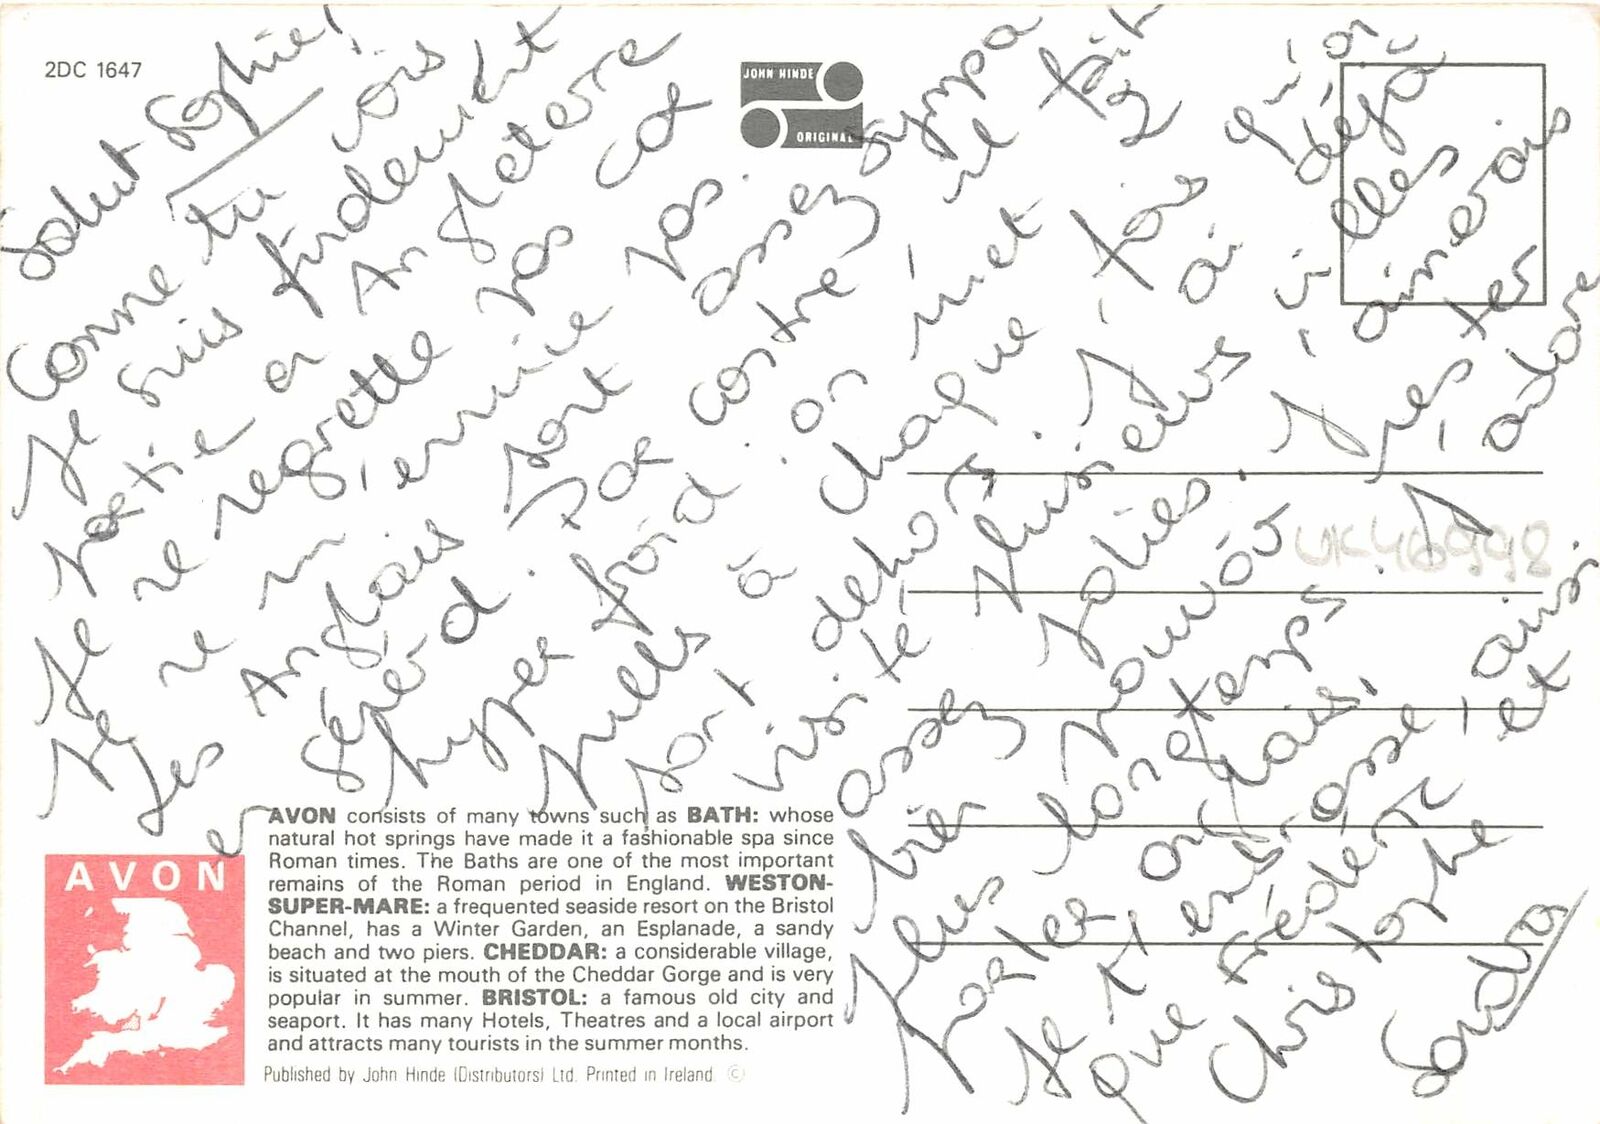 2DC 1647
JOHN HINDE
ORIGINAL
Salut Sophie!
Comme tu vois
Je suis finalement
partie en Angleterre
Je ne regrette pas car
Je ne m'ennuie pas.
Les Anglais sont assez sympa
en général. Par contre, il fait
hyper froid : on met 2
pulls à chaque fois qu'on
sort dehors. J'ai déjà
visité plusieurs villes
assez jolies. J'aimerais
bien pouvoir rester
plus longtemps. J'adore
parler anglais.
Je t'embrasse, ainsi
que Frédéric et
Christophe
Sandra
UK46998
AVON
AVON consists of many towns such as BATH: whose
natural hot springs have made it a fashionable spa since
Roman times. The Baths are one of the most important
remains of the Roman period in England. WESTON-
SUPER-MARE: a frequented seaside resort on the Bristol
Channel, has a Winter Garden, an Esplanade, a sandy
beach and two piers. CHEDDAR: a considerable village,
is situated at the mouth of the Cheddar Gorge and is very
popular in summer. BRISTOL: a famous old city and
seaport. It has many Hotels, Theatres and a local airport
and attracts many tourists in the summer months.
Published by John Hinde (Distributors) Ltd. Printed in Ireland. ©